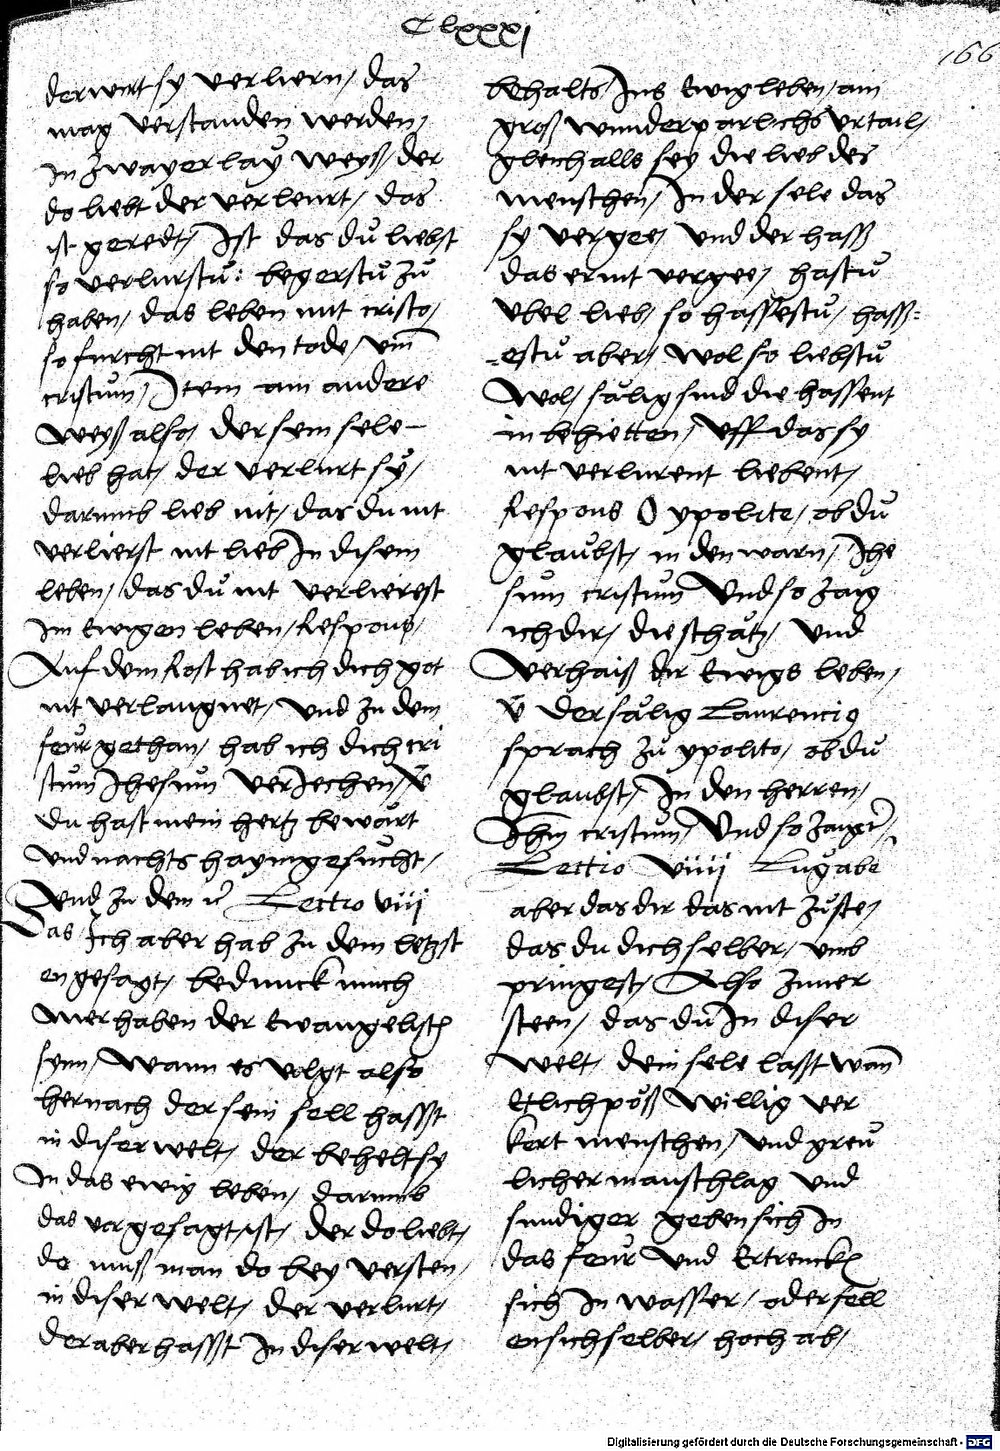 Clxxxj
166
der wirt sy verliern / das
mag verstanden werden /
In zwayerlay weyß / der
do liebt der verleurt / das
ist geredt / Ist das du liebst
so verlurstu : begerstu zů
haben / das leben mit cristo /
so furcht nit den tode / vm̄
cristum / Item am andere
weyß also / der sein sele
lieb hat / der verlurt sy /
darumb lieb nit / das du nit
verlierst nit lieb In disem
leben / das dů nit verlierest
Im Ewigen leben / Respons /
Auf dem Rost hab ich dich got
nit verlaugnet / Vnd zu dem
feur gethan / hab ich dich cri
stum Jhesum verJechen / v̄
du hast mein hertz bewart
vnd nachts haymgesucht /
Vnd zu dem Lectio viij
Das Ich aber hab zu dem letzst
en gesagt / bedunck mich
mer haben der Ewangelisch
synn / Wann es volgt also
hernach der sein sell hasst
in diser welt / der beheltsy
In das ewig leben / darumb
das vorgesagt ist / der do liebt /
do muß man do bey versten /
in diser welt / der verlurt /
der aber hasst In diser welt /
behalts / Ins Ewig leben / ain
groß wunderparlichs vrtail /
gleich alls sey die lieb des
menschen / In der sele das
sy vergee / vnd der hass
das er nit vergee / hastu
vbel lieb / so hassestu / hass=
estu aber / wol so liebstu
Wol / sälig sind die hassent
in behietten / Vff das sy
nit verlurent liebent /
Respons O ypolite / ob dů
glaubst / in den warn / Jhe
sum cristum Vnd so zaig
ich dir / die schätz / Vnd
Verhaiß dir Ewigs leben /
v̄ der sälig Laurencig
sprach zů ypolito / ob dů
glaubst / In den herren /
Jhm̄ cristum / Vnd so zaigt /
Lectio viiij Lug abe
aber das dir das nit zuste /
das du dich selber / vmb
pringest / Also zuuer
steen / das dů In diser
welt / dein sele lasst wan̄
Etlich pöß willig ver
kert menschen / vnd greu
licher manschlag vnd
sundiger geben sich In
das feur Vnd Ertrencken
sich In wasser / oder fell
en sich selber / hoch ab /
Digitalisierung gefördert durch die Deutsche Forschungsgemeinschaft - DFG